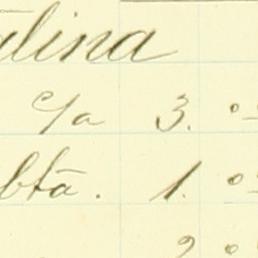 alina
c/a 3. o
bta. 1. o
2 o